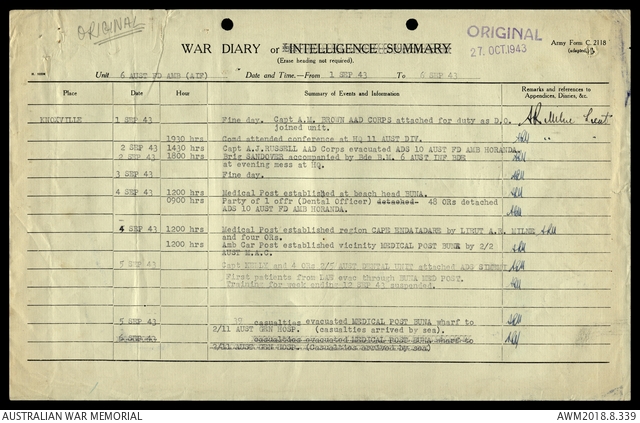 ORIGINAL
ORIGINAL
27. OCT. 1943
Army Form C. 2118
WAR DIARY or INTELLIGENCE SUMMARY
(Erase heading not required).
Unit 6 AUST FD AMB (AIF) Date and Time.—From 1 SEP 43 To 6 SEP 43
Place Date Hour Summary of Events and Information Remarks and references to
Appendices, Diaries, &c.
KNOXVILLE 1 SEP 43 Fine day. Capt A.M. BROWN AAD CORPS attached for duty as D.O.
joined unit.
1930 hrs Comd attended conference at HQ 11 AUST DIV.
2 SEP 43 1430 hrs Capt A.J. RUSSELL AAD Corps evacuated ADS 10 AUST FD AMB HORANDA.
2 SEP 43 1800 hrs Brig SANDOVER accompanied by Bde B.M. 6 AUST INF BDE
at evening mess at HQ.
3 SEP 43 Fine day.
4 SEP 43 1200 hrs Medical Post established at beach head BUNA.
0900 hrs Party of 1 offr (Dental Officer) detached 48 ORs detached
ADS 10 AUST FD AMB HORANDA.
4 SEP 43 1200 hrs Medical Post established region CAPE ENDAIADARE by LIEUT A.R. MILNE
and four ORs.
1200 hrs Amb Car Post established vicinity MEDICAL POST BUNA by 2/2
AUST M.A.C.
5 SEP 43 Capt KELLY and 4 ORs 2/3 AUST DENTAL UNIT attached ADS
First patients from evac through BUNA MED POST.
Training for week ending 12 SEP 43 suspended.
5 SEP 43 38 casualties evacuated MEDICAL POST BUNA wharf to
2/11 AUST GEN HOSP. (casualties arrived by sea).
6 SEP 43 casualties evacuated MEDICAL POST BUNA wharf to
2/11 AUST GEN HOSP. (Casualties arrived by sea)
AUSTRALIAN WAR MEMORIAL AWM2018.8.339